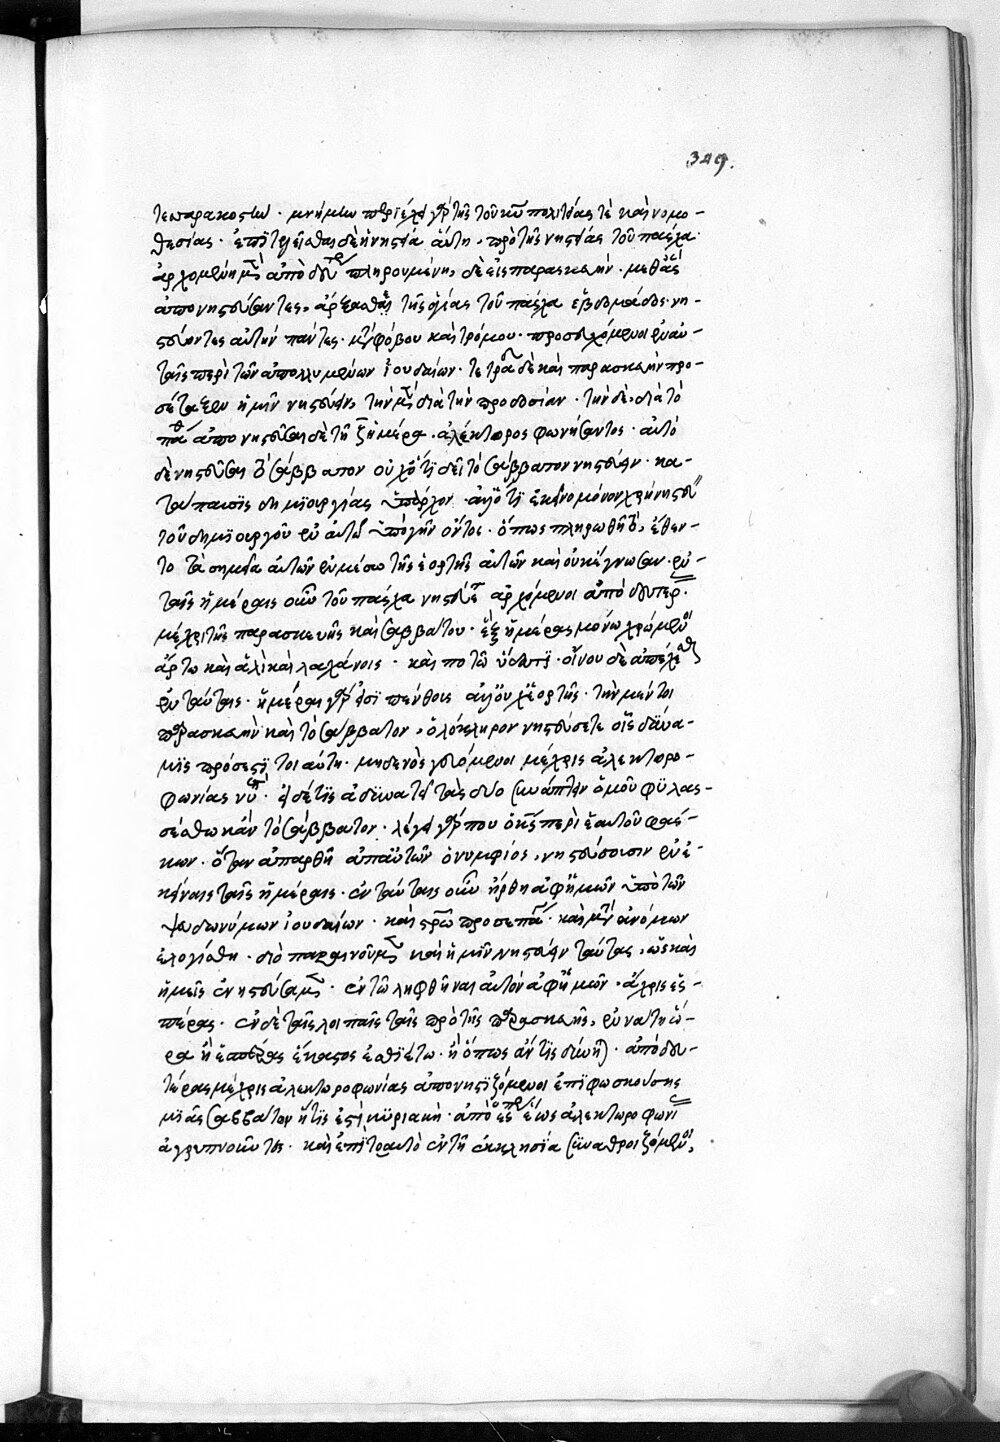 349.
τεσσαρακοστὴ · μνήμην περιέχει γὰρ τῆς τοῦ κυ πολιτείας τὲ καὶ νομο-
θεσίας · ἐπιτελεῖσθαι δὲ ἡ νηστεία αὕτη, πρὸ τῆς νηστείας τοῦ πάσχα·
ἀρχομένη μὲν ἀπὸ δευτέρ πληρουμένη, δὲ εἰς παρασκευήν · μεθ' ἃς
ἀπονηστεύσαντες, ἄρξασθαι τῆς ἁγίας τοῦ πάσχα ἑβδομάδος· νη-
στεύοντες αὐτὴν πάντες · μετὰ φόβου καὶ τρόμου · προσευχόμενοι ἐν αὐ-
ταῖς περὶ τῶν ἀπολλυμένων ἰουδαίων · τετράδα δὲ καὶ παρασκευὴν προ-
σέταξεν ἡμῖν νηστεύειν, τὴν μὲν διὰ τὴν προδοσίαν · τὴν δὲ, διὰ τὸ
παθ ἀπονηστεῦσαι δὲ τῇ ζ ἡμέρα · ἀλέκτορος φωνήσαντος · αὐτὸ
δὲ νηστεῦσαι τὸ σάββατον οὐχ ὅτι δεῖ τὸ σάββατον νηστεύειν · κα-
τάπαυσις δημιουργίας ὑπάρχον · ἀλλ' ὅτι ἐκεῖνο μόνον χρὴ νηστεύ
τοῦ δημιουργοῦ ἐν αὐτῷ ὑπὸ γῆν ὄντος · ὅπως πληρωθῇ τὸ, ἔθεν-
το τὰ σημεῖα αὐτῶν ἐν μέσω τῆς ἑορτῆς αὐτῶν καὶ οὐκ ἔγνωσαν · ἐν
ταῖς ἡμέραις οὖν τοῦ πάσχα νηστεύετε ἀρχόμενοι ἀπὸ δευτέρ ·
μέχρι τῆς παρασκευῆς καὶ σαββάτου · ἓξ ἡμέρας μόνω χρώμενοι
ἄρτω καὶ ἁλὶ καὶ λαχάνοις · καὶ ποτῷ ὕδατι · οἴνου δὲ ἀπέχεσθαι
ἐν ταύταις · ἡμέραι γὰρ εἰσὶ πένθους ἀλλ' οὐχ ἑορτῆς · τὴν μέντοι
παρασκευὴν καὶ τὸ σάββατον, ὁλόκληρον νηστεύσετε οἷς δύνα-
μις πρόσεστι τοιαύτη · μηδενὸς γευόμενοι μέχρις ἀλεκτορο-
φωνίας νυκ · εἰ δέ τις ἀδυνατεῖ τὰς δύο συνάπτειν ὁμοῦ φυλασ-
σέσθω κἂν τὸ σάββατον · λέγει γάρ που ὁ κς περὶ ἑαυτοῦ φάσ-
κων · ὅταν ἀπαρθῇ ἀπ' αὐτῶν ὁ νυμφίος, νηστεύσουσιν ἐν ἐ-
κείναις ταῖς ἡμέραις · ἐν ταύταις οὖν ἤρθη ἀφ' ἡμῶν ὑπὸ τῶν
ψευδωνύμων ἰουδαίων · καὶ σρῶ προσεπάγ · καὶ μετὰ ἀνόμων
ἐλογίσθη · διὸ παραινοῦμεν καὶ ἡμῖν νηστεύειν ταύτας, ὡς καὶ
ἡμεῖς ἐνηστεύσαμεν · ἐν τῷ ληφθῆναι αὐτὸν ἀφ' ἡμῶν · ἄχρις ἑσ-
πέρας · ἐν δὲ ταῖς λοιπαῖς ταῖς πρὸ τῆς παρασκευῆς, ἐννάτη ὥ-
ρα ἢ ἑσπέρας ἕκαστος ἐσθιέτω · ἢ ὅπως ἄν τις δύνη) · ἀπὸ δευ-
τέρας μέχρις ἀλεκτοροφωνίας ἀπονηστιζόμενοι ἐπιφωσκούσης
μιᾶς σαββάτων ἥτις ἐστὶ κυριακὴ · ἀπὸ ἑσπέρ ἕως ἀλεκτοροφωνί
ἀγρυπνοῦντες · καὶ ἐπὶ τοαυτὸ ἐν τῇ ἐκκλησία συναθροιζόμενοι,